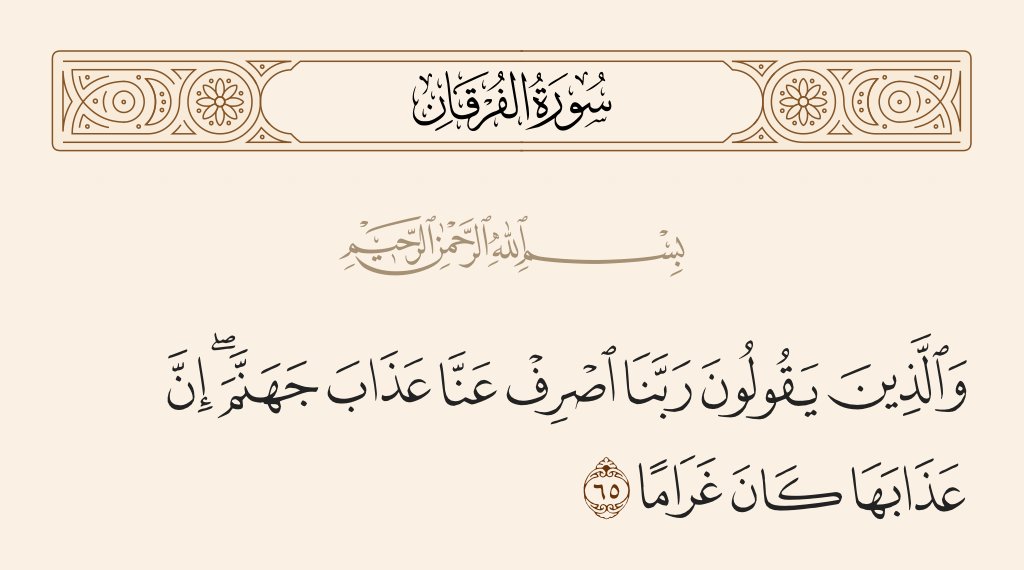 سُورَةُ الفُرْقَانِ
بِسْمِ ٱللَّهِ ٱلرَّحْمَٰنِ ٱلرَّحِيمِ
وَٱلَّذِينَ يَقُولُونَ رَبَّنَا ٱصْرِفْ عَنَّا عَذَابَ جَهَنَّمَ ۖ إِنَّ
عَذَابَهَا كَانَ غَرَامًا ٦٥